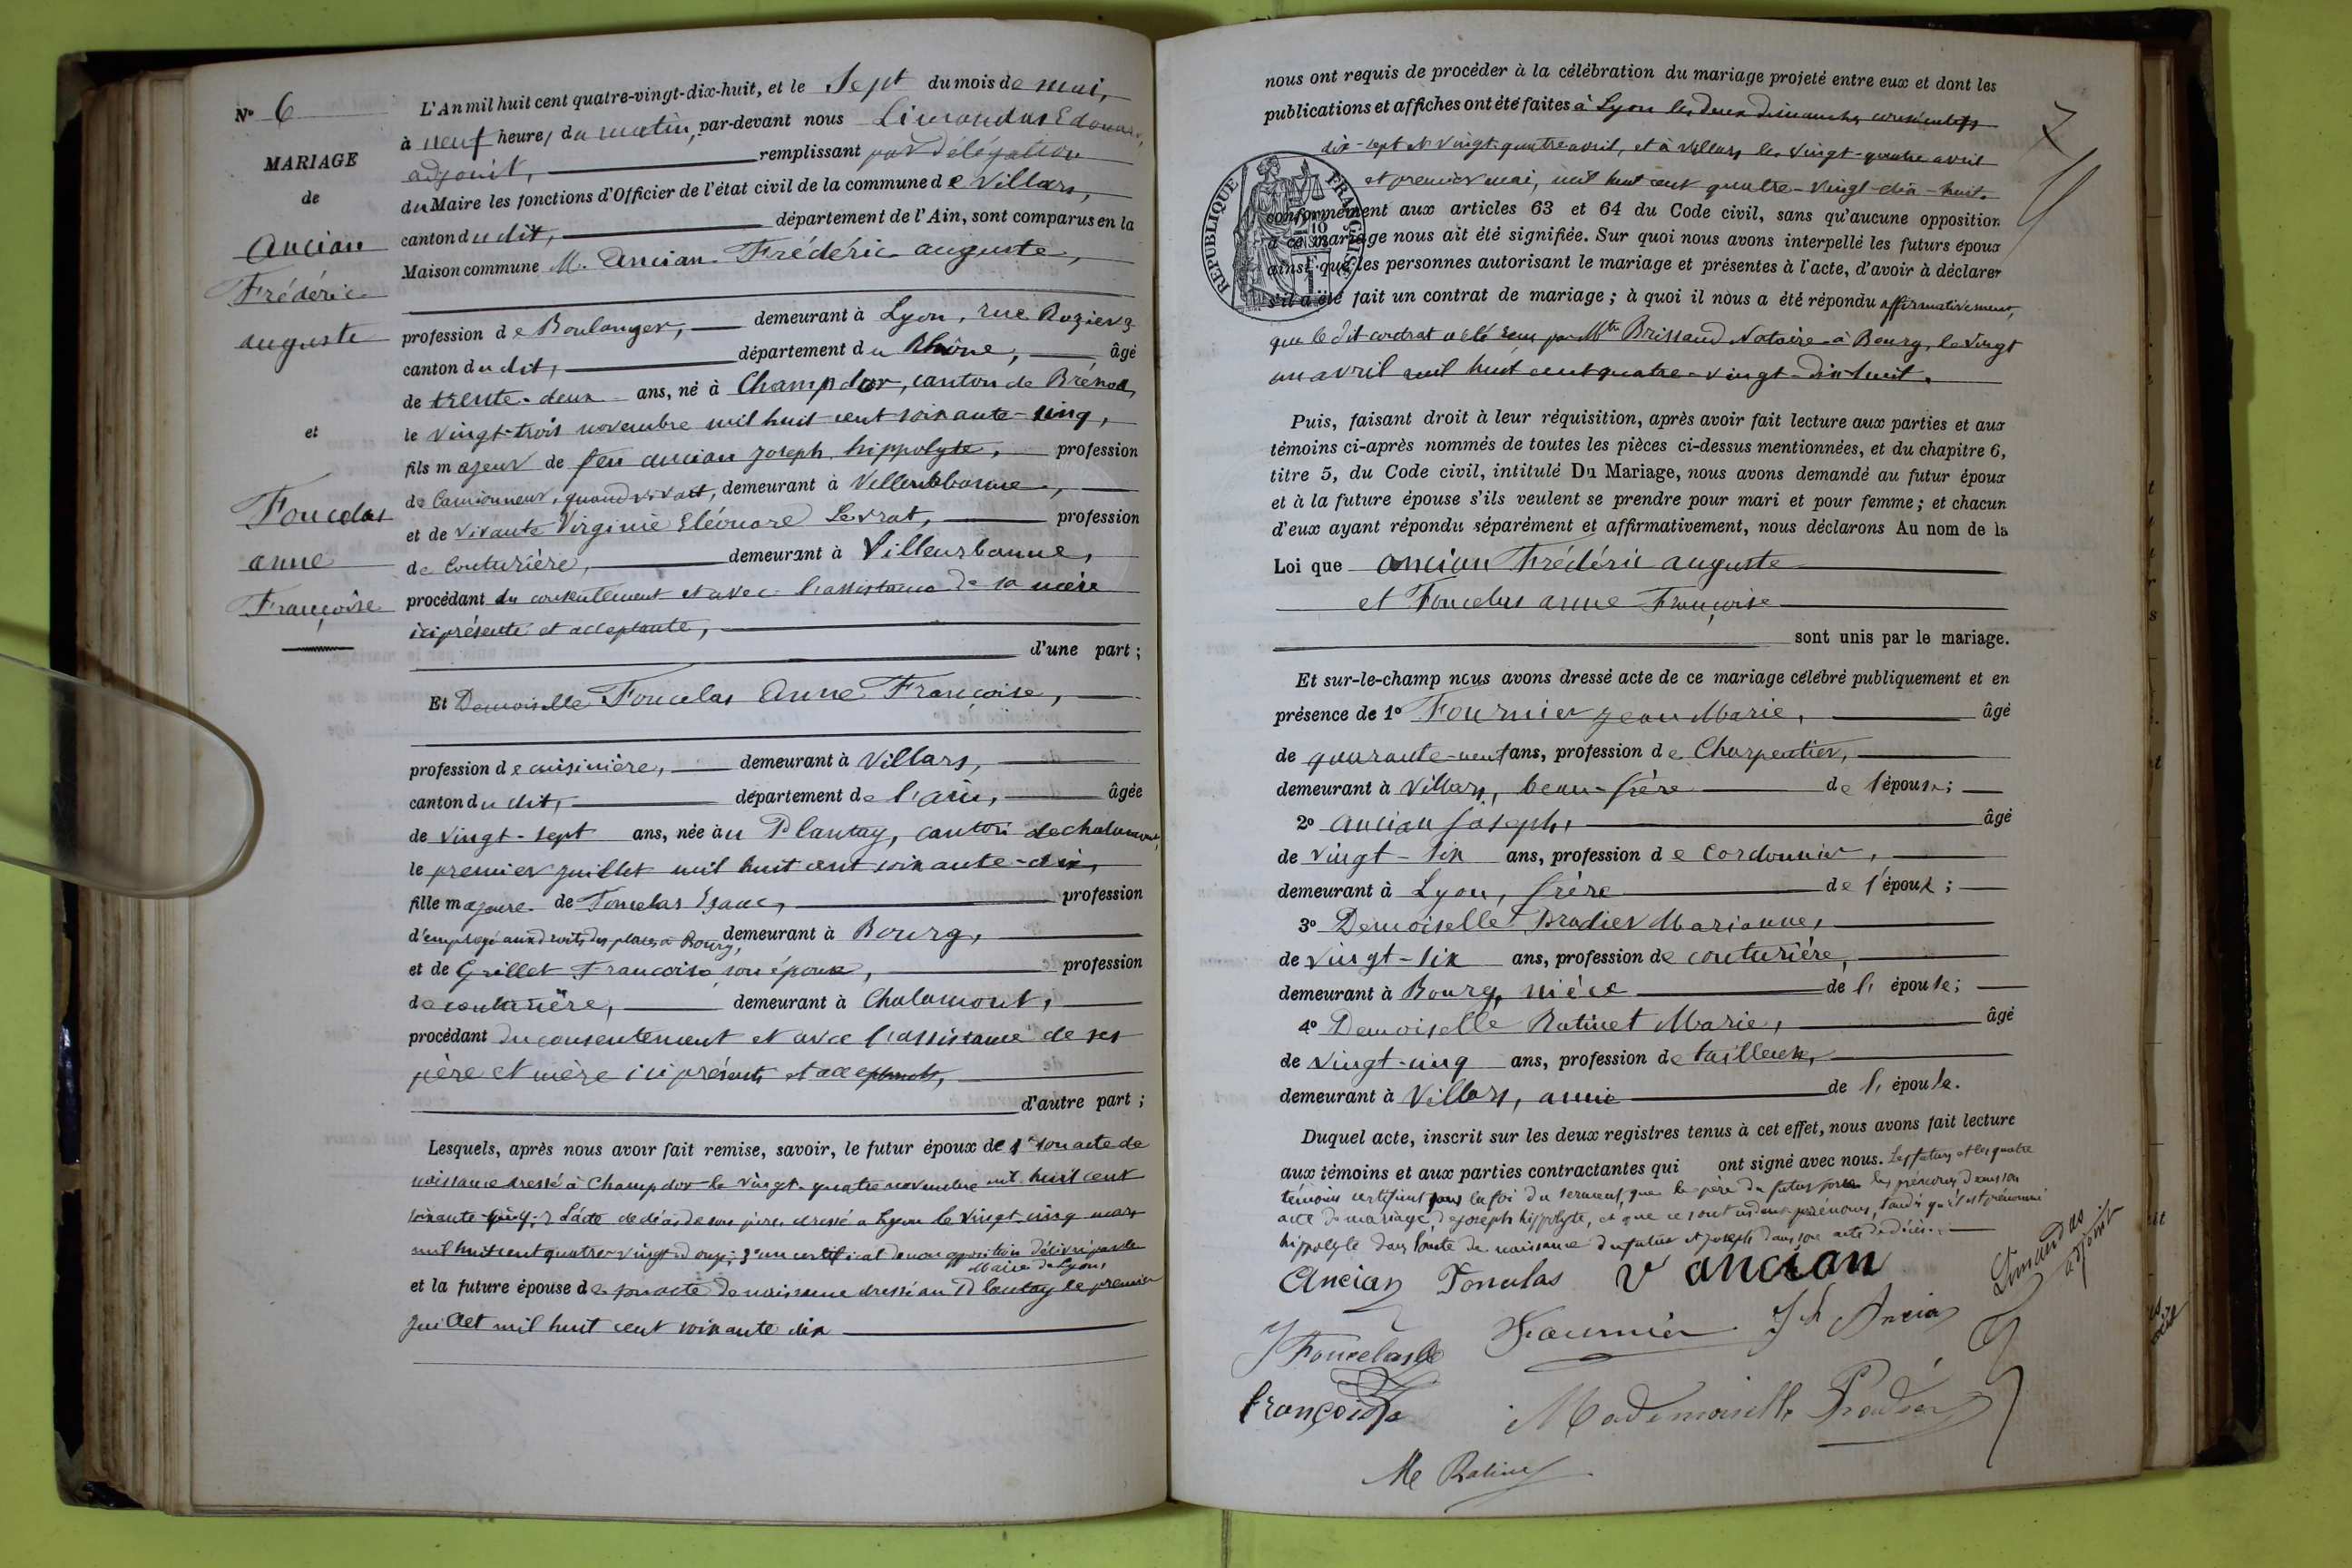 N° 6
MARIAGE
de
Ancian
Frédéric
auguste
et
Foucelas
anne
Françoise
L'An mil huit cent quatre-vingt-dix-huit, et le Sept du mois de mai,
à neuf heures du matin, par-devant nous Limandas Edouard,
adjoint, remplissant par délégation
du Maire les fonctions d'Officier de l'état civil de la commune de Villars,
canton du dit, département de l'Ain, sont comparus en la
Maison commune M. Ancian Frédéric auguste,
profession de Boulanger, demeurant à Lyon, rue Rozier 3
canton du dit, département du Rhône, âgé
de trente-deux ans, né à Champdor, canton de Brénod,
le vingt-trois novembre mil huit cent soixante-cinq,
fils majeur de feu ancian Joseph hippolyte, profession
de Camionneur, quand vivait, demeurant à Villeurbanne,
et de vivante Virginie Eléonore Levrat, profession
de Couturière, demeurant à Villeurbanne,
procédant du consentement et avec l'assistance de sa mère
ici présente et acceptante,
d'une part ;
Et Demoiselle Foucelas Anne Françoise,
profession de cuisinière, demeurant à Villars,
canton du dit, département de l'ain, âgée
de vingt-sept ans, née au Plantay, canton de chalamont,
le premier juillet mil huit cent soixante-dix,
fille majeure de Foucelas Isaac, profession
d'employé aux droits des places à Bourg, demeurant à Bourg,
et de Grillet Francoise, son épouse, profession
de couturière, demeurant à Chalamont,
procédant du consentement et avec l'assistance de ses
père et mère ici présents et acceptants,
d'autre part ;
Lesquels, après nous avoir fait remise, savoir, le futur époux de 1° son acte de
naissance dressé à Champdor le vingt-quatre novembre mil huit cent
soixante-cinq; 2° l'acte de décès de son père, dressé à Lyon le vingt-cinq mars
mil huit cent quatre-vingt-douze; 3° un certificat de non opposition délivré par le
Maire de Lyon,
et la future épouse de son acte de naissance dressé au Plantay le premier
juillet mil huit cent soixante dix
nous ont requis de procéder à la célébration du mariage projeté entre eux et dont les
publications et affiches ont été faites à Lyon les deux dimanches consécutifs
dix-sept et vingt-quatre avril, et à Villars les vingt-quatre avril
et premier mai, mil huit cent quatre-vingt-dix-huit.
7
REPUBLIQUE FRANÇAISE
conformément aux articles 63 et 64 du Code civil, sans qu'aucune opposition
à ce mariage nous ait été signifiée. Sur quoi nous avons interpellé les futurs époux
ainsi que les personnes autorisant le mariage et présentes à l'acte, d'avoir à déclarer
s'il a été fait un contrat de mariage ; à quoi il nous a été répondu affirmativement,
que le dit contrat a été reçu par Mtre Brissaud Notaire à Bourg, le vingt
un avril mil huit cent quatre-vingt-dix huit.
Puis, faisant droit à leur réquisition, après avoir fait lecture aux parties et aux
témoins ci-après nommés de toutes les pièces ci-dessus mentionnées, et du chapitre 6,
titre 5, du Code civil, intitulé Du Mariage, nous avons demandé au futur époux
et à la future épouse s'ils veulent se prendre pour mari et pour femme ; et chacun
d'eux ayant répondu séparément et affirmativement, nous déclarons Au nom de la
Loi que ancian Frédéric auguste
et Foucelas anne Françoise
sont unis par le mariage.
Et sur-le-champ nous avons dressé acte de ce mariage célébré publiquement et en
présence de 1° Fournier Jean Marie, âgé
de quarante-neuf ans, profession de Charpentier,
demeurant à Villars, beau-frère de l'épouse ;
2° ancian Joseph, âgé
de vingt-six ans, profession de cordonnier,
demeurant à Lyon, frère de l'époux ;
3° Demoiselle Pradier Marianne,
de vingt-six ans, profession de couturière,
demeurant à Bourg, nièce de l'épouse ;
4° Demoiselle Ratinet Marie, âgé
de vingt-cinq ans, profession de tailleuse,
demeurant à Villars, amie de l'épouse.
Duquel acte, inscrit sur les deux registres tenus à cet effet, nous avons fait lecture
aux témoins et aux parties contractantes qui ont signé avec nous. Les futurs et les quatre
témoins certifient sous la foi du serment, que le père du futur les prénoms dans son
acte de mariage, de Joseph hippolyte, et que ce sont ses deux prénoms, tandis qu'il est prénommé
hippolyte dans l'acte de naissance du futur et Joseph dans son acte de décès.
Ancian Foucelas V ancian
Limandas
adjoint
J Foucelas Fournier Jh Ancian
françoise
Mademoiselle Pradier
Me Ratinet